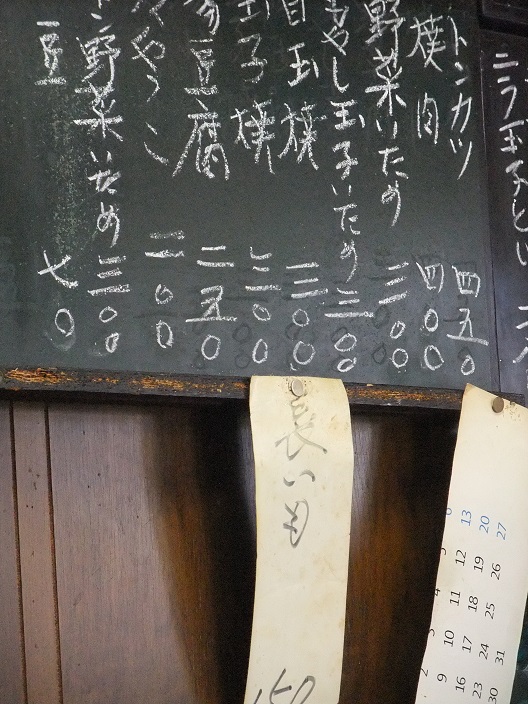 ニラ玉子とい
トンカツ 四五〇
焼肉 四〇〇
野菜いため 三〇〇
もやし玉子いため 三〇〇
目玉焼 三〇〇
玉子焼 三〇〇
豆腐 二五〇
やっこ 二〇〇
野菜いため 三〇〇
豆 七〇
長いも
50
6 13 20 27
5 12 19 26
4 11 18 25
3 10 17 24 31
2 9 16 23 30